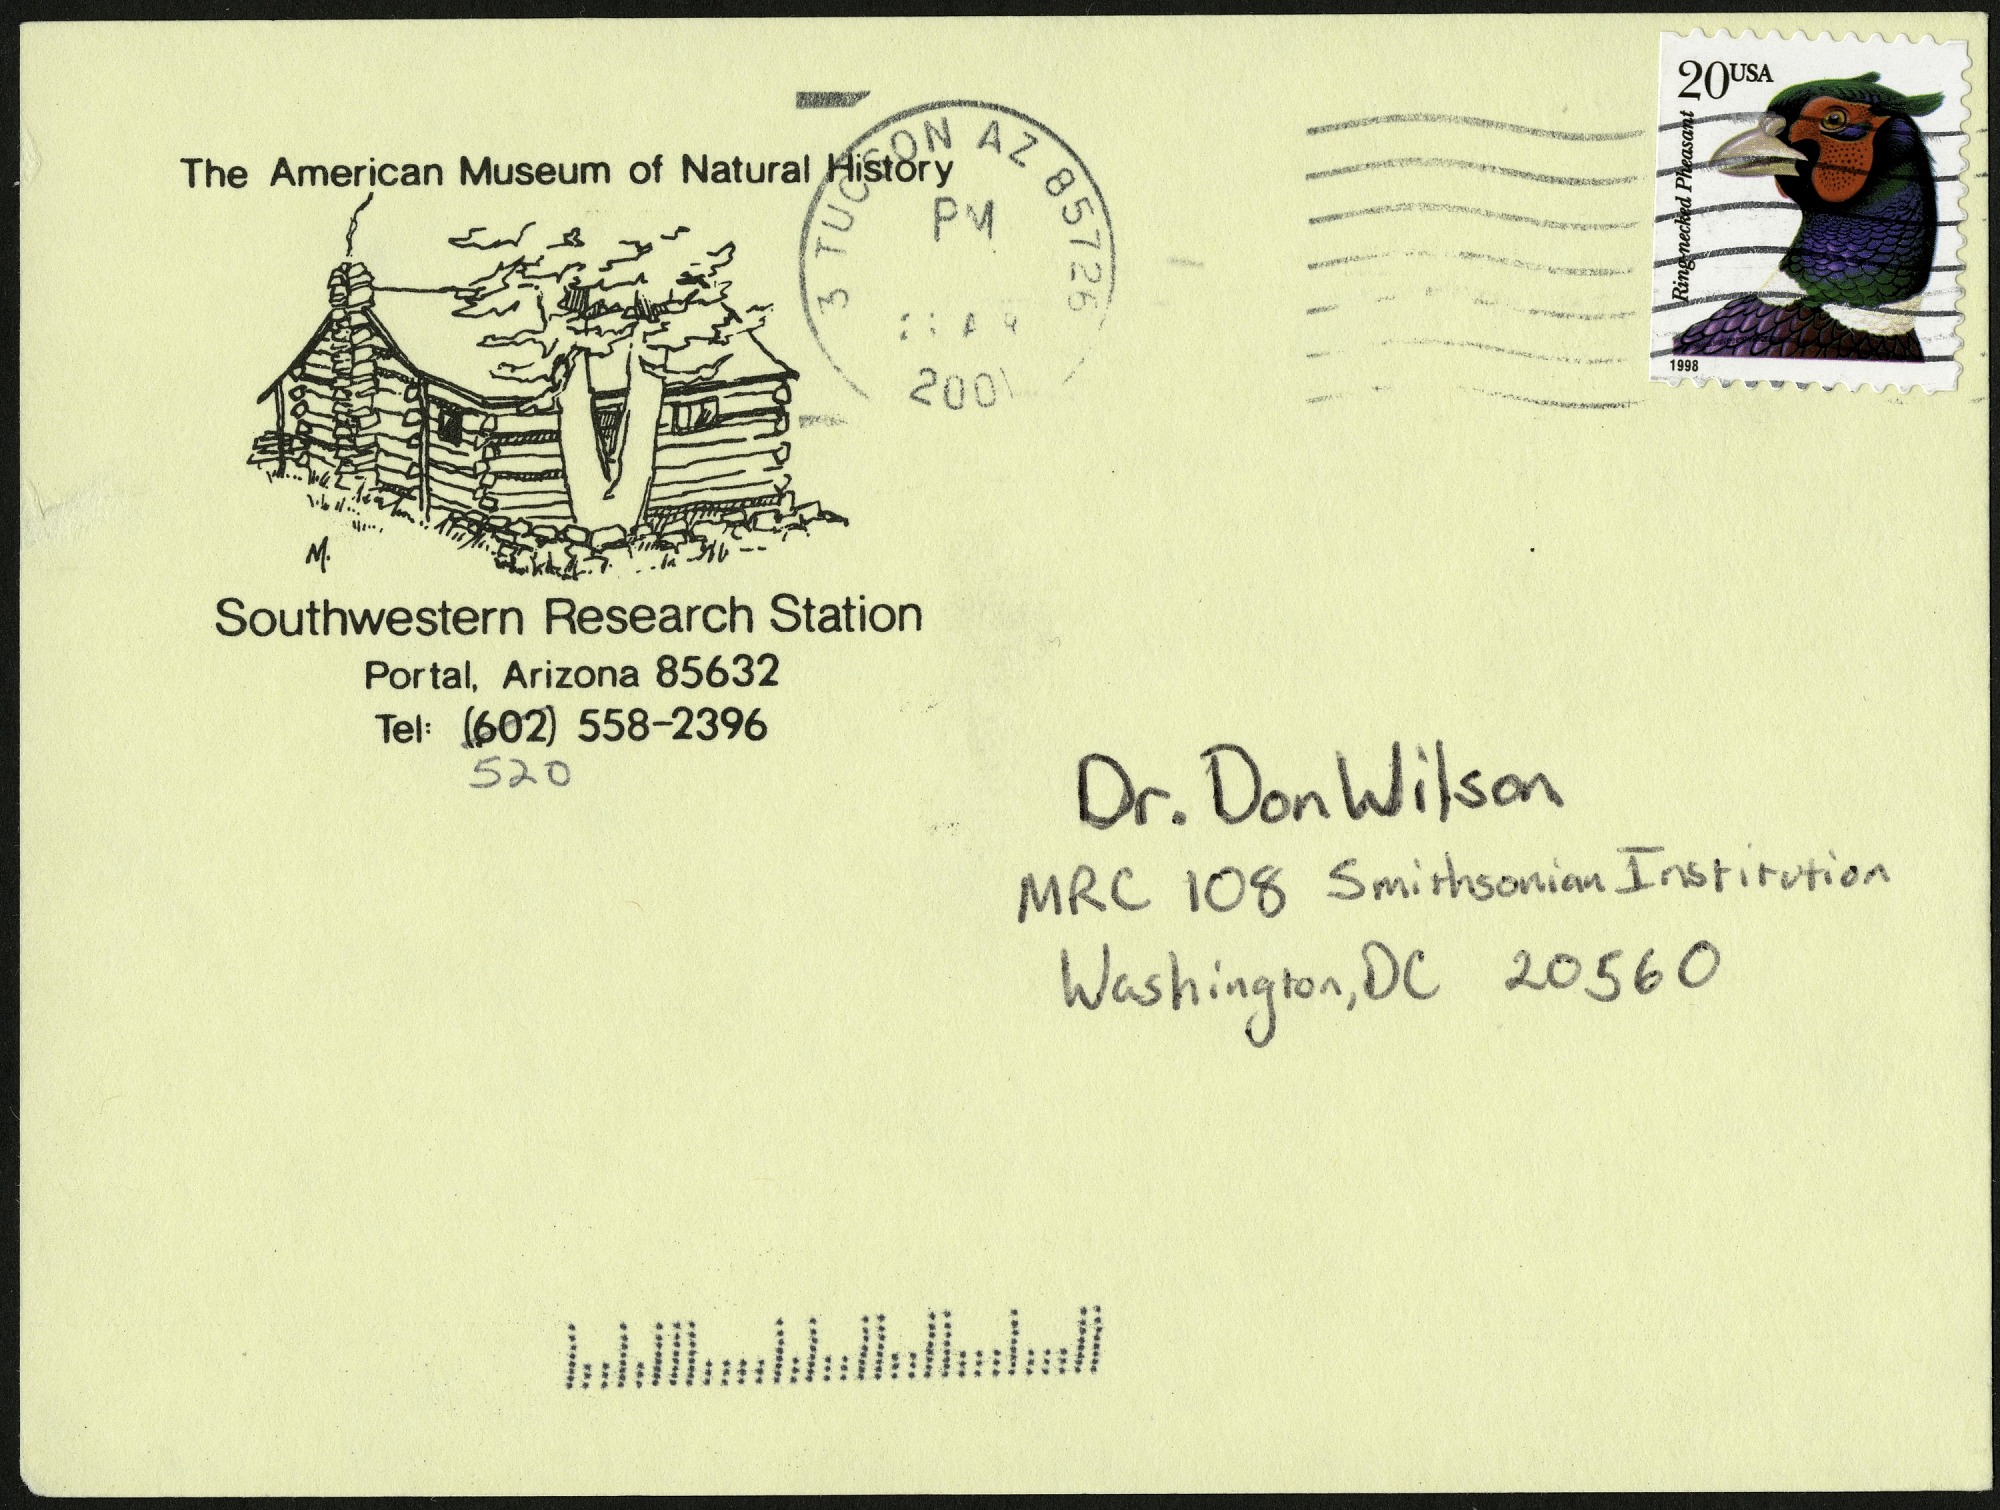 The American Museum of Natural History
3 TUCSON AZ 85726
PM
2001
20USA
Ring-necked Pheasant
1998
M.
Southwestern Research Station
Portal, Arizona 85632
Tel: (602) 558-2396
520
Dr. Don Wilson
MRC 108 Smithsonian Institution
Washington, DC 20560